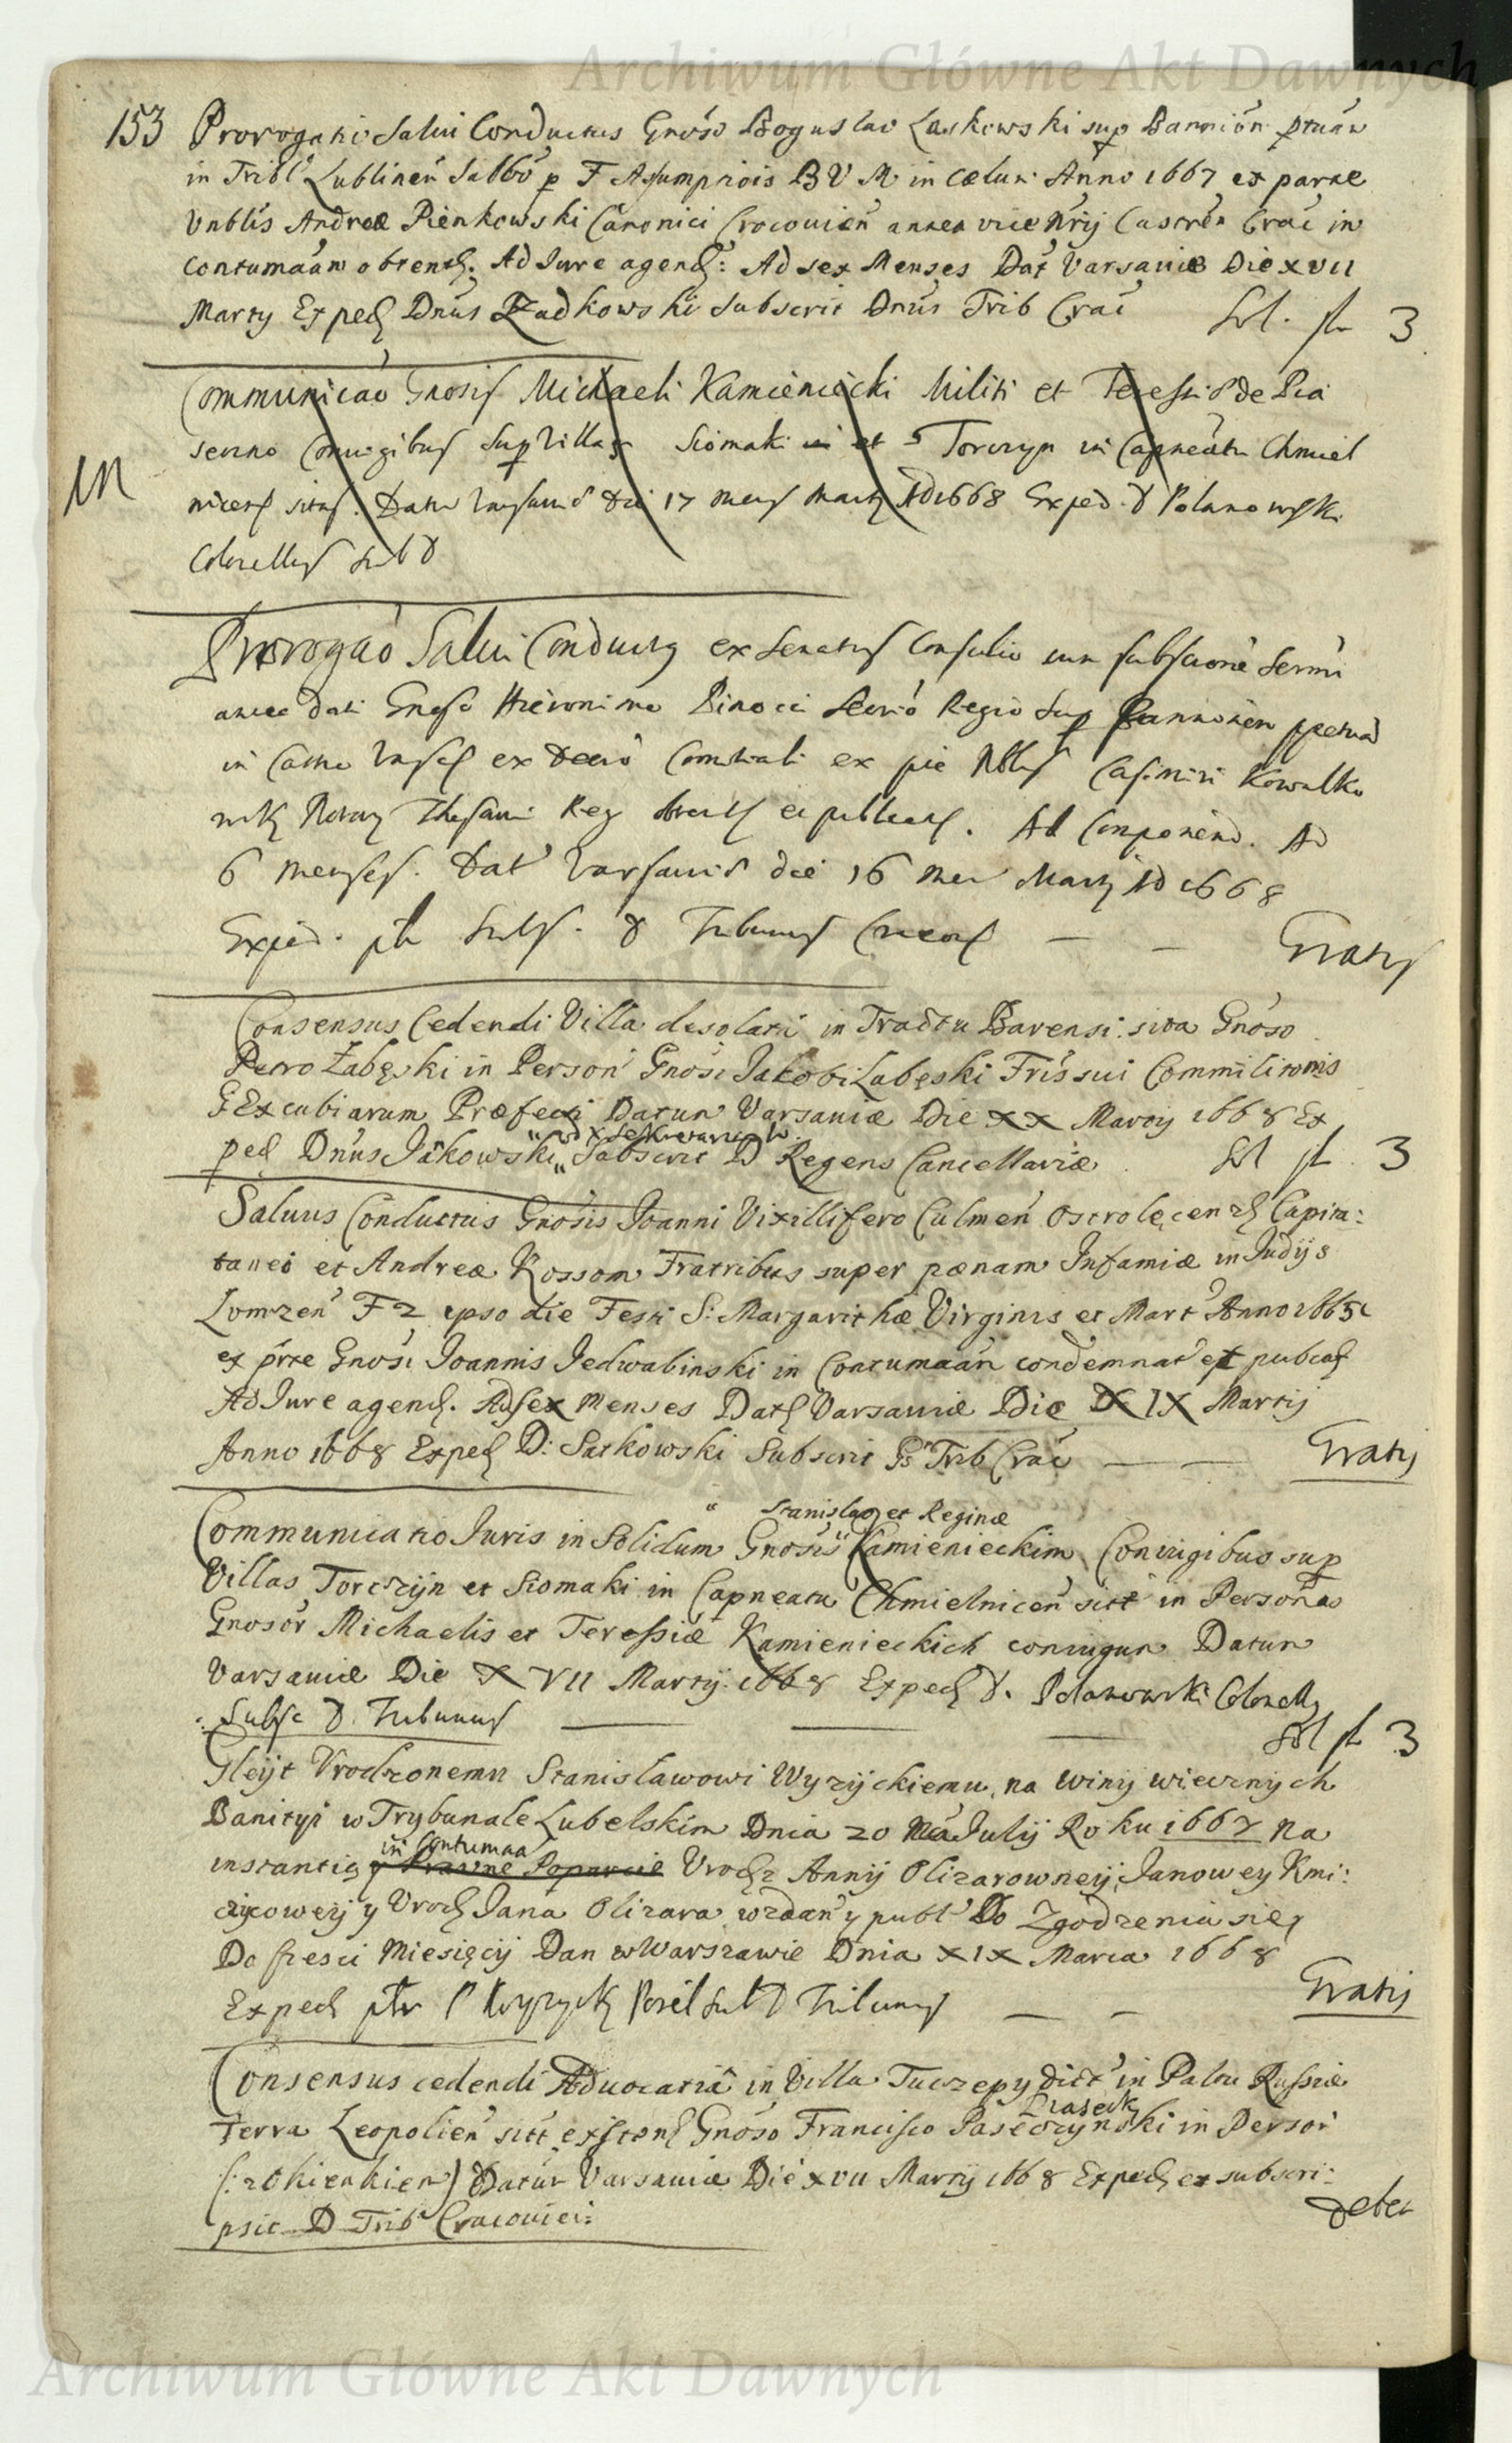 Archiwum Główne Akt Dawnych
153 Prorogatio Salvi Conductus Gnoso Boguslao Laskowski sup Bannion ptuam
in Tribli Lublinen Sabbo p F Assumptiois B V M in Cælum Anno 1667 ex parte
Vnblis Andreæ Pienkowski Canonici Crocovien antea vice Nrij Castren Crac in
Contumaam obtent. Ad Jure agend: Ad sex Menses Dat Varsaviæ Die XVII
Marty Exped Dnus Zadkowski Subscrit Dnus Trib Crac Sol. fl 3
Communicao Gnosis Michaeli Kamieniecki Militi et Teressiæ de Pia
seczno Coniugibus Sup Villas Siomaki et Torczyn in Capneatu Chmiel
nicens sitas. Datu Varsaviæ Die 17 Mens Marty AD 1668 Exped. D Polanowski
Colonellus Sub D
Prorogao Salvi Conductus ex Senatus Consulio cum subscione Sermi
antea dati Gnoso Hieronimo Pinocci Secrio Regio Sup Bannionem ppetuam
in Castro Varsch ex Decio Comitiali ex pte Nblis Casimiri Kowalko
Notarii Thesauri Reg obtent et publicat. Ad Componend. Ad
6 Menses. Dat Varsaviæ die 16 Men Marty AD 1668
Exped. Subs. D Tribunus Cracous — — Gratis
Consensus Cedendi Villa desolata in Tractu Barensi sita Gnoso
Petro Łabęski in Person Gnosi Jakobi Łabęski Fris sui Commilitonis
Excubiarum Præfecti Datum Varsaviæ Die XX Marty 1668 Ex
ped Dnus Jakowski Subscrit D Regens Cancellariæ Sol fl 3
Salvus Conductus Gnosis Joanni Vixillifero Culmen Ostrolęcen Capita:
taneo et Andreæ Kossom Fratribus super pænam Infamiæ in Judijs
Lomzen F 2 ipso die Festi S: Margarithæ Virginis et Mart Anno 1665
ex prte Gnosi Joannis Jedwabinski in Contumaam condemnat et publicat
Ad Jure agend. Ad sex Menses Dat Varsaviæ Die XIX Martij
Anno 1668 Exped D: Sarkowski Subscrit Gs Trib Crac — — Gratis
Stanislao et Reginæ
Communicatio Juris in Solidum Gnosis Kamienieckim Coniugibus sup
Villas Torczyn et Siomaki in Capneatu Chmielnicen sitt in Personas
Gnosor Michaelis et Teressiæ Kamienieckich coniugum Datum
Varsaviæ Die XVII Martij 1668 Exped D. Polanowski Colonellus
Subsc D. Tribunus — — — Sol fl 3
Gleijt Vrodzonemu Stanislawowi Wyzijckiemu na winij wiecznych
Banityi w Trybunale Lubelskim Dnia 20 Julij Roku 1667 na
in Contumaa
instantią y Prawne Poparcie Vrodz Annij Olizarowneij Janowey Kmi:
cicoweij y Vrodz Jana Olizara wzdan y publ Do Zgodzenia się
Do szesci Miesięcij Dan w Warszawie Dnia XIX Marca 1668
Exped P Wyzycki Sub D Tribunus — — Gratis
Consensus cedendi Advocatia in Villa Tuczepy dict in Paltu Russiæ
Piaseck
Terra Leopolien sitt existen Gnoso Francisco Paseczynski in Person
(: okienkien) Datum Varsaviæ Die XVII Martij 1668 Exped et subscri:
psit D Trib Cracovien: Debet
Archiwum Główne Akt Dawnych